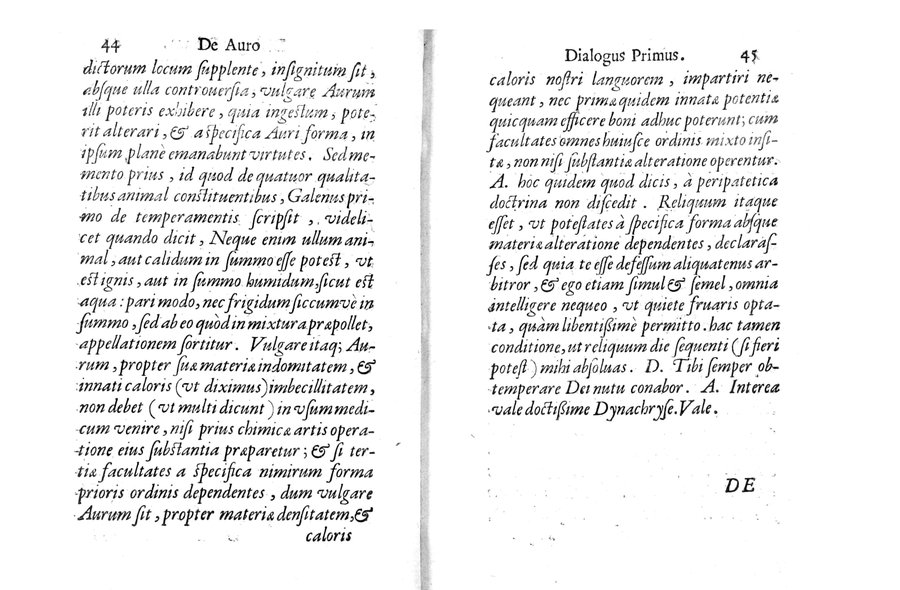 44 De Auro
dictorum locum ſupplente, inſignitum ſit,
abſque ulla controuerſia, vulgare Aurum
illi poteris exhibere, quia ingeſtum, pote-
rit alterari, & a ſpecifica Auri forma, in
ipſum plane emanabunt virtutes. Sed me-
mento prius, id quod de quatuor qualita-
tibus animal conſtituentibus, Galenus pri-
mo de temperamentis ſcripſit, videli-
cet quando dicit, Neque enim ullum ani-
mal, aut calidum in ſummo eſſe poteſt, vt
eſt ignis, aut in ſummo humidum, ſicut eſt
aqua: pari modo, nec frigidum ſiccumvè in
ſummo, ſed ab eo quòd in mixtura præpollet,
appellationem ſortitur. Vulgare itaq; Au-
rum, propter ſuæ materiæ indomitatem, &
innati caloris (vt diximus) imbecillitatem,
non debet (vt multi dicunt) in vſum medi-
cum venire, niſi prius chimicæ artis opera-
tione eius ſubſtantia præparetur; & ſi ter-
tiæ facultates a ſpecifica nimirum forma
prioris ordinis dependentes, dum vulgare
Aurum ſit, propter materiæ denſitatem, &
caloris
Dialogus Primus. 45
caloris noſtri languorem, impartiri ne-
queant, nec primæ quidem innatæ potentiæ
quicquam efficere boni adhuc poterunt; cum
facultates omnes huiuſce ordinis mixto inſi-
tæ, non niſi ſubſtantiæ alteratione operentur.
A. hoc quidem quod dicis, à peripatetica
doctrina non diſcedit. Reliquum itaque
eſſet, vt poteſtates à ſpecifica forma abſque
materiæ alteratione dependentes, declaraſ-
ſes, ſed quia te eſſe defeſſum aliquatenus ar-
bitror, & ego etiam ſimul & ſemel, omnia
intelligere nequeo, vt quiete fruaris opta-
ta, quàm libentiſſimè permitto. hac tamen
conditione, ut reliquum die ſequenti (ſi fieri
poteſt) mihi abſoluas. D. Tibi ſemper ob-
temperare Dei nutu conabor. A. Interea
vale doctiſſime Dynachryſe. Vale.
DE